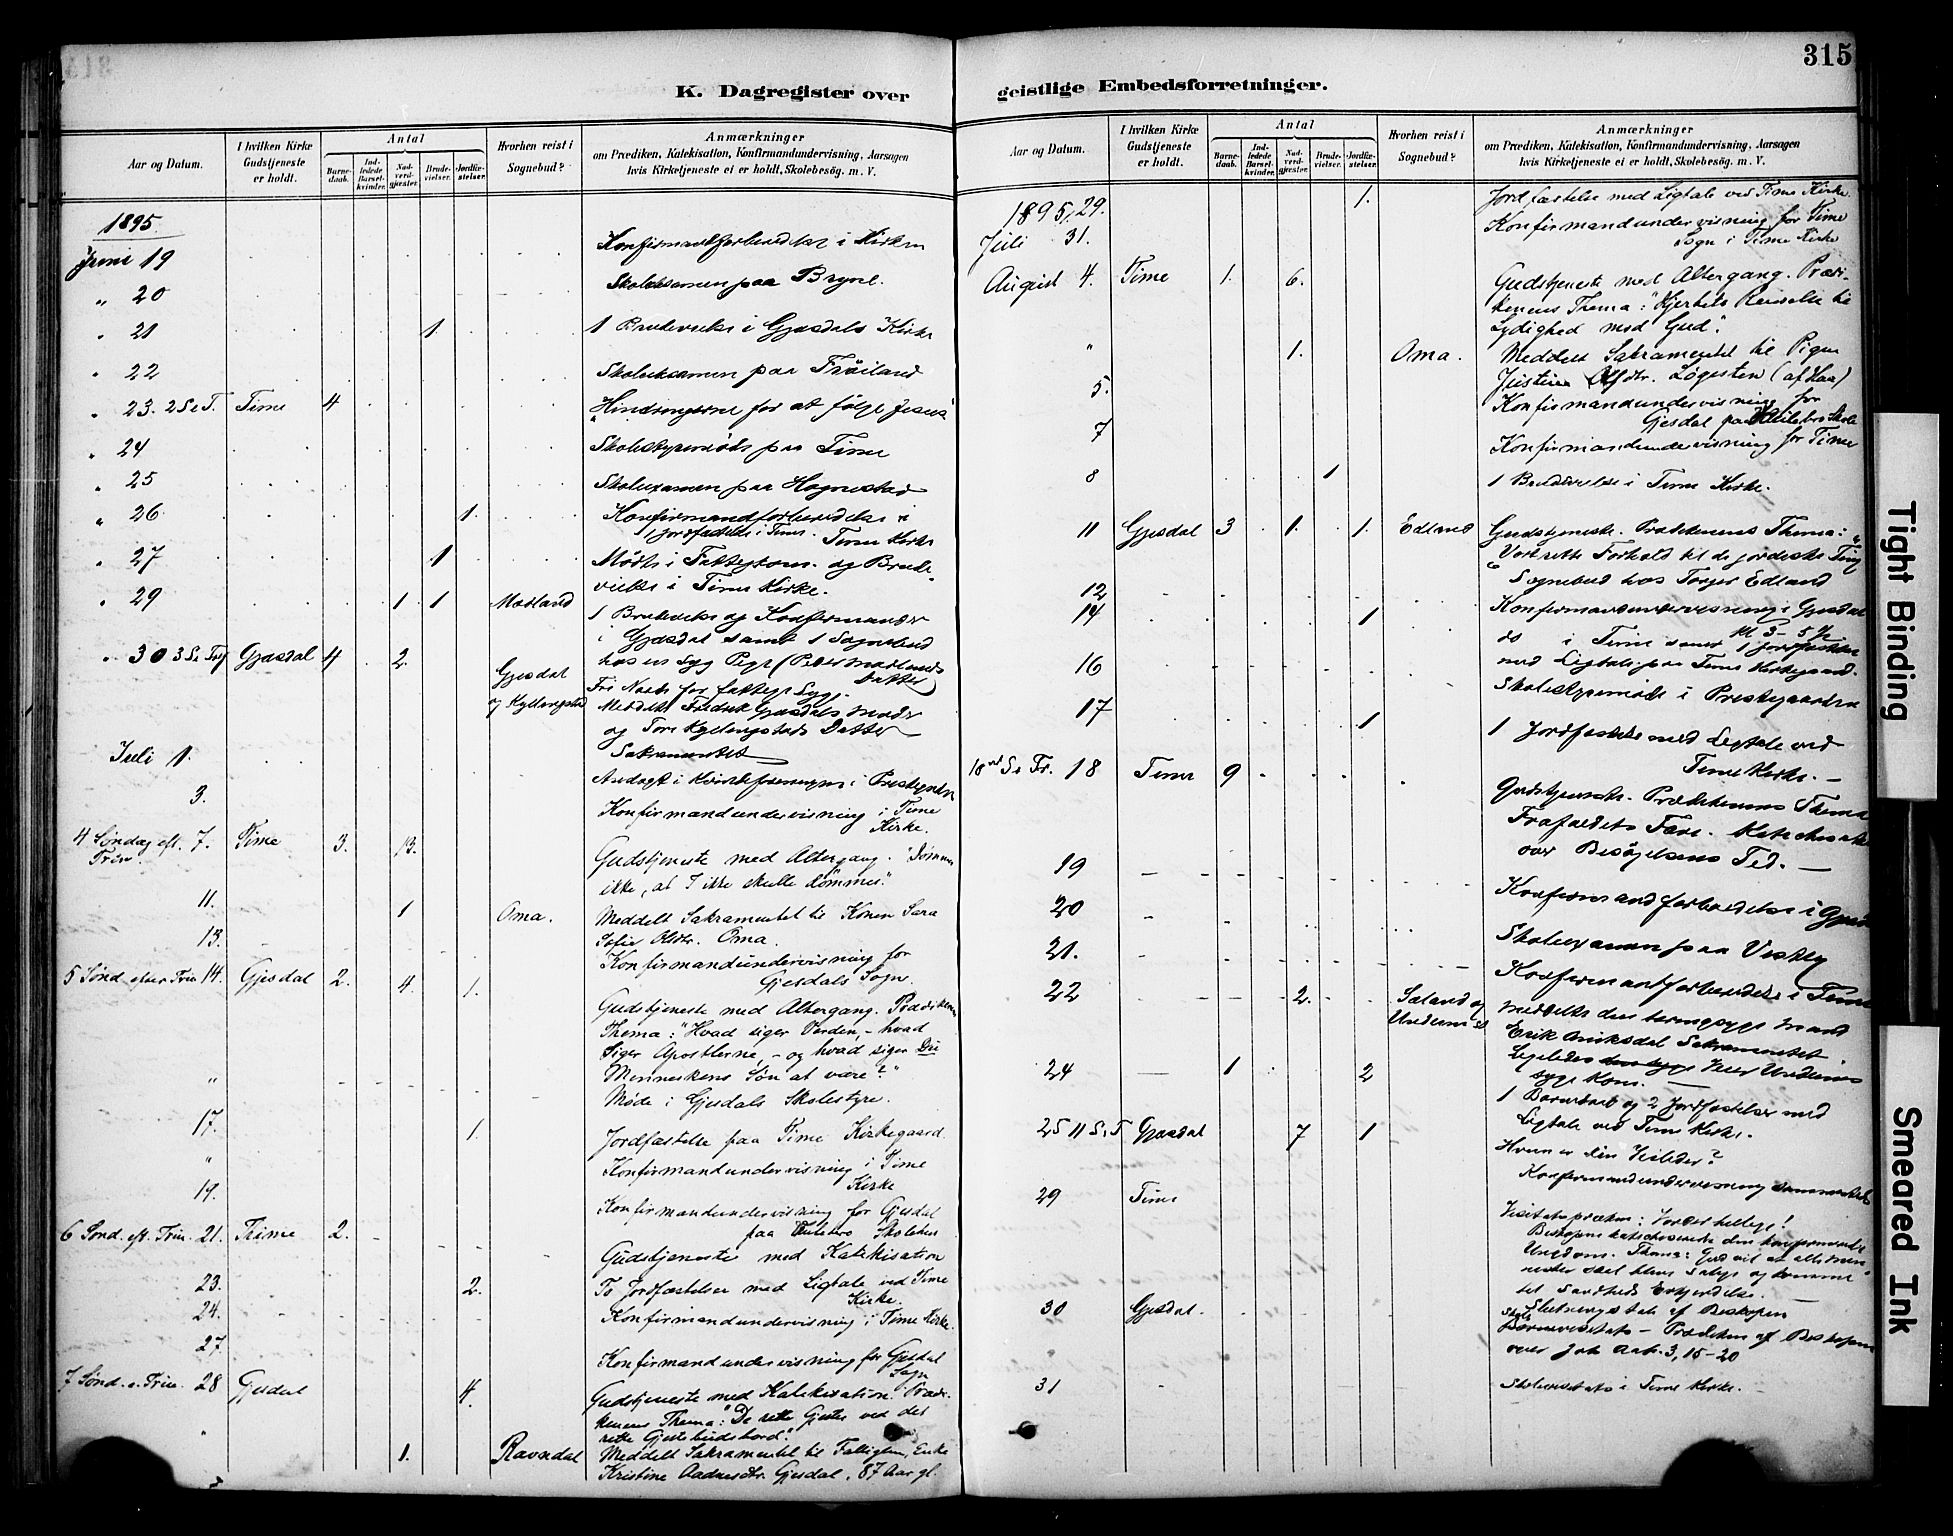 315
K. Dagregister over
Aar og Datum.
I hvilken Kirke Gudstjeneste er holdt.
Antal
Barne-daab.
Ind-ledede Barsel-kvinder.
Nad-verd-gjester.
Brude-vielser.
Jordfæ-stelser.
Hvorhen reist i Sognebud?
Anmærkninger
om Prædiken, Katekisation, Konfirmandundervisning, Aarsagen
hvis Kirketjeneste ei er holdt, Skolebesøg. m. V.
1895
Juni 19 Konfirmantforberedelse i Kirken
" 20 Skoleexamen paa Bryne.
" 21 1 1 Brudevielse i Gjesdals Kirke
" 22 Skoleexamen paa Frøiland
" 23. 2 S e T. Time 4 "Hindringerne for at følge Jesus"
" 24 Skolestyremøde paa Time
" 25 Skoleexamen paa Hognestad
" 26 1. Konfirmandforberedelse i
1 Jordfæstelse i Time. Time Kirke
" 27 1 Møde i Fattigkom. og Brude-
vielse i Time Kirke.
" 29 1 1 Madland 1 Brudevielse og Konfirmander
i Gjesdal samt 1 Sognebud
" 30 3 S e Tr Gjesdal 4 2. hos en syg Pige (Peder Madlands
Datter
Gjesdal og Kyllingstad
for fattige Syge.
Meddelt Fredrik Gjesdals Moder
og Tore Kyllingstads Datter
Sakramentet
Juli 1. Andagt i Kvindeforeningen i Prestegaarden
3. Konfirmandundervisning i Time
Kirke.
4 Søndag eft. Trin. 7. Time 3. 13. Gudstjeneste med Altergang. "Dømmer
ikke, at I ikke skulle dømmes."
11. 1 Oma. Meddelt Sakramentet til Konen Sara
Sofie Olsdtr. Oma.
13. Konfirmandundervisning for
Gjesdals Sogn.
5 Sønd efter Trin 14. Gjesdal 2. 4. 1. Gudstjeneste med Altergang. Prædikenens
Thema: "Hvad siger Verden, - hvad
siger Apostlerne, - og hvad siger Du
Menneskens Søn at være?"
" Møde i Gjesdals Skolestyre.
17. 1. Jordfæstelse paa Time Kirkegaard
" Konfirmandundervisning i Time
Kirke
19. Konfirmandundervisning for Gjesdal
paa Skolehus
6 Sønd. eft. Trin. 21. Time 2. Gudstjeneste med Katekisation
23. 2. To Jordfæstelser med Ligtale ved Time
Kirke.
24. Konfirmandundervisning i Time Kirke.
27 Konfirmandundervisning for Gjesdal
Sogn
7 Sønd. e. Trin. 28 Gjesdal 4. Gudstjeneste med Katekisation. Prædi-
kenens Thema: "De rette Gjester ved det
rette Gjestebudsbord."
" 1. Ravndal Meddelt Sakramentet til Fattiglem, Enke
Kristine Aadnesdtr. Gjesdal, 87 Aar gl.
geistlige Embedsforretninger.
Aar og Datum.
I hvilken Kirke Gudstjeneste er holdt.
Antal
Barne-daab.
Ind-ledede Barsel-kvinder.
Nad-verd-gjester.
Brude-vielser.
Jordfæ-stelser.
Hvorhen reist i Sognebud?
Anmærkninger
om Prædiken, Katekisation, Konfirmandundervisning, Aarsagen
hvis Kirketjeneste ei er holdt, Skolebesøg. m. V.
1895, 29. 1. Jordfæstelse med Ligtale ved Time Kirke.
Juli 31. Konfirmandundervisning for Time
Sogn i Time Kirke
August 4. Time 1. 6. Gudstjeneste med Altergang. Prædi-
kenens Thema: "Hjertets Renselse til
Lydighed mod Gud".
" 1. Oma. Meddelt Sakramentet til Pigen
Justine Løgesten (af Haa)
5. Konfirmandundervisning for
Gjesdal paa Skole
7 Konfirmandundervisning for Time
8 1 1 Brudevielse i Time Kirke.
11 Gjesdal 3 1. 1. Edland Gudstjeneste. Prædikenens Thema: "
Vort rette Forhold til de jordiske Ting
" Sognebud hos Torger Edland
12 Konfirmandundervisning i Gjesdal
14 1 do i Time samt 1 Jordfæstelse
Kl 3-5
med Ligtale paa Time Kirkegaard.
16 Skolestyremøde i Prestegaarden
17 1 1 Jordfæstelse med Ligtale ved
Time Kirke. -
10de S e Tr. 18 Time 9 Gudstjeneste. Prædikenens Thema
Frafaldets Fare. Katekisation
over Besøgelsens Tid. -
19 Konfirmandforberedelse i Gjesdal
20 Skoleexamen paa Vestly
21. Konfirmantforberedelse i Time
22 2. Sæland og Undem Meddelte den syge Mand
Erik Sakramentet.
Ligeledes den syge
syge Kone.
24 1 2 1 Barnedaab og 2 Jordfæstelser med
Ligtale ved Time Kirke.
25 11 S. T Gjesdal 7 1 Hvem er din Veileder?
Konfirmandundervisning
29 Time Visitatspræken: Vorder hellige!
Biskopen katechiserede den konfirmerede
Ungdom. Thema: Gud vil at alle Men-
nesker skal blive salige og komme
til Sandheds Erkjendelse.
Slutningstale af Biskopen
30 Gjesdal. Visitats - Prædiken af Biskopen
over Joh Aab. 3, 15-20
31 Skolevisitats i Time Kirke. -
Tight Binding
Smeared Ink